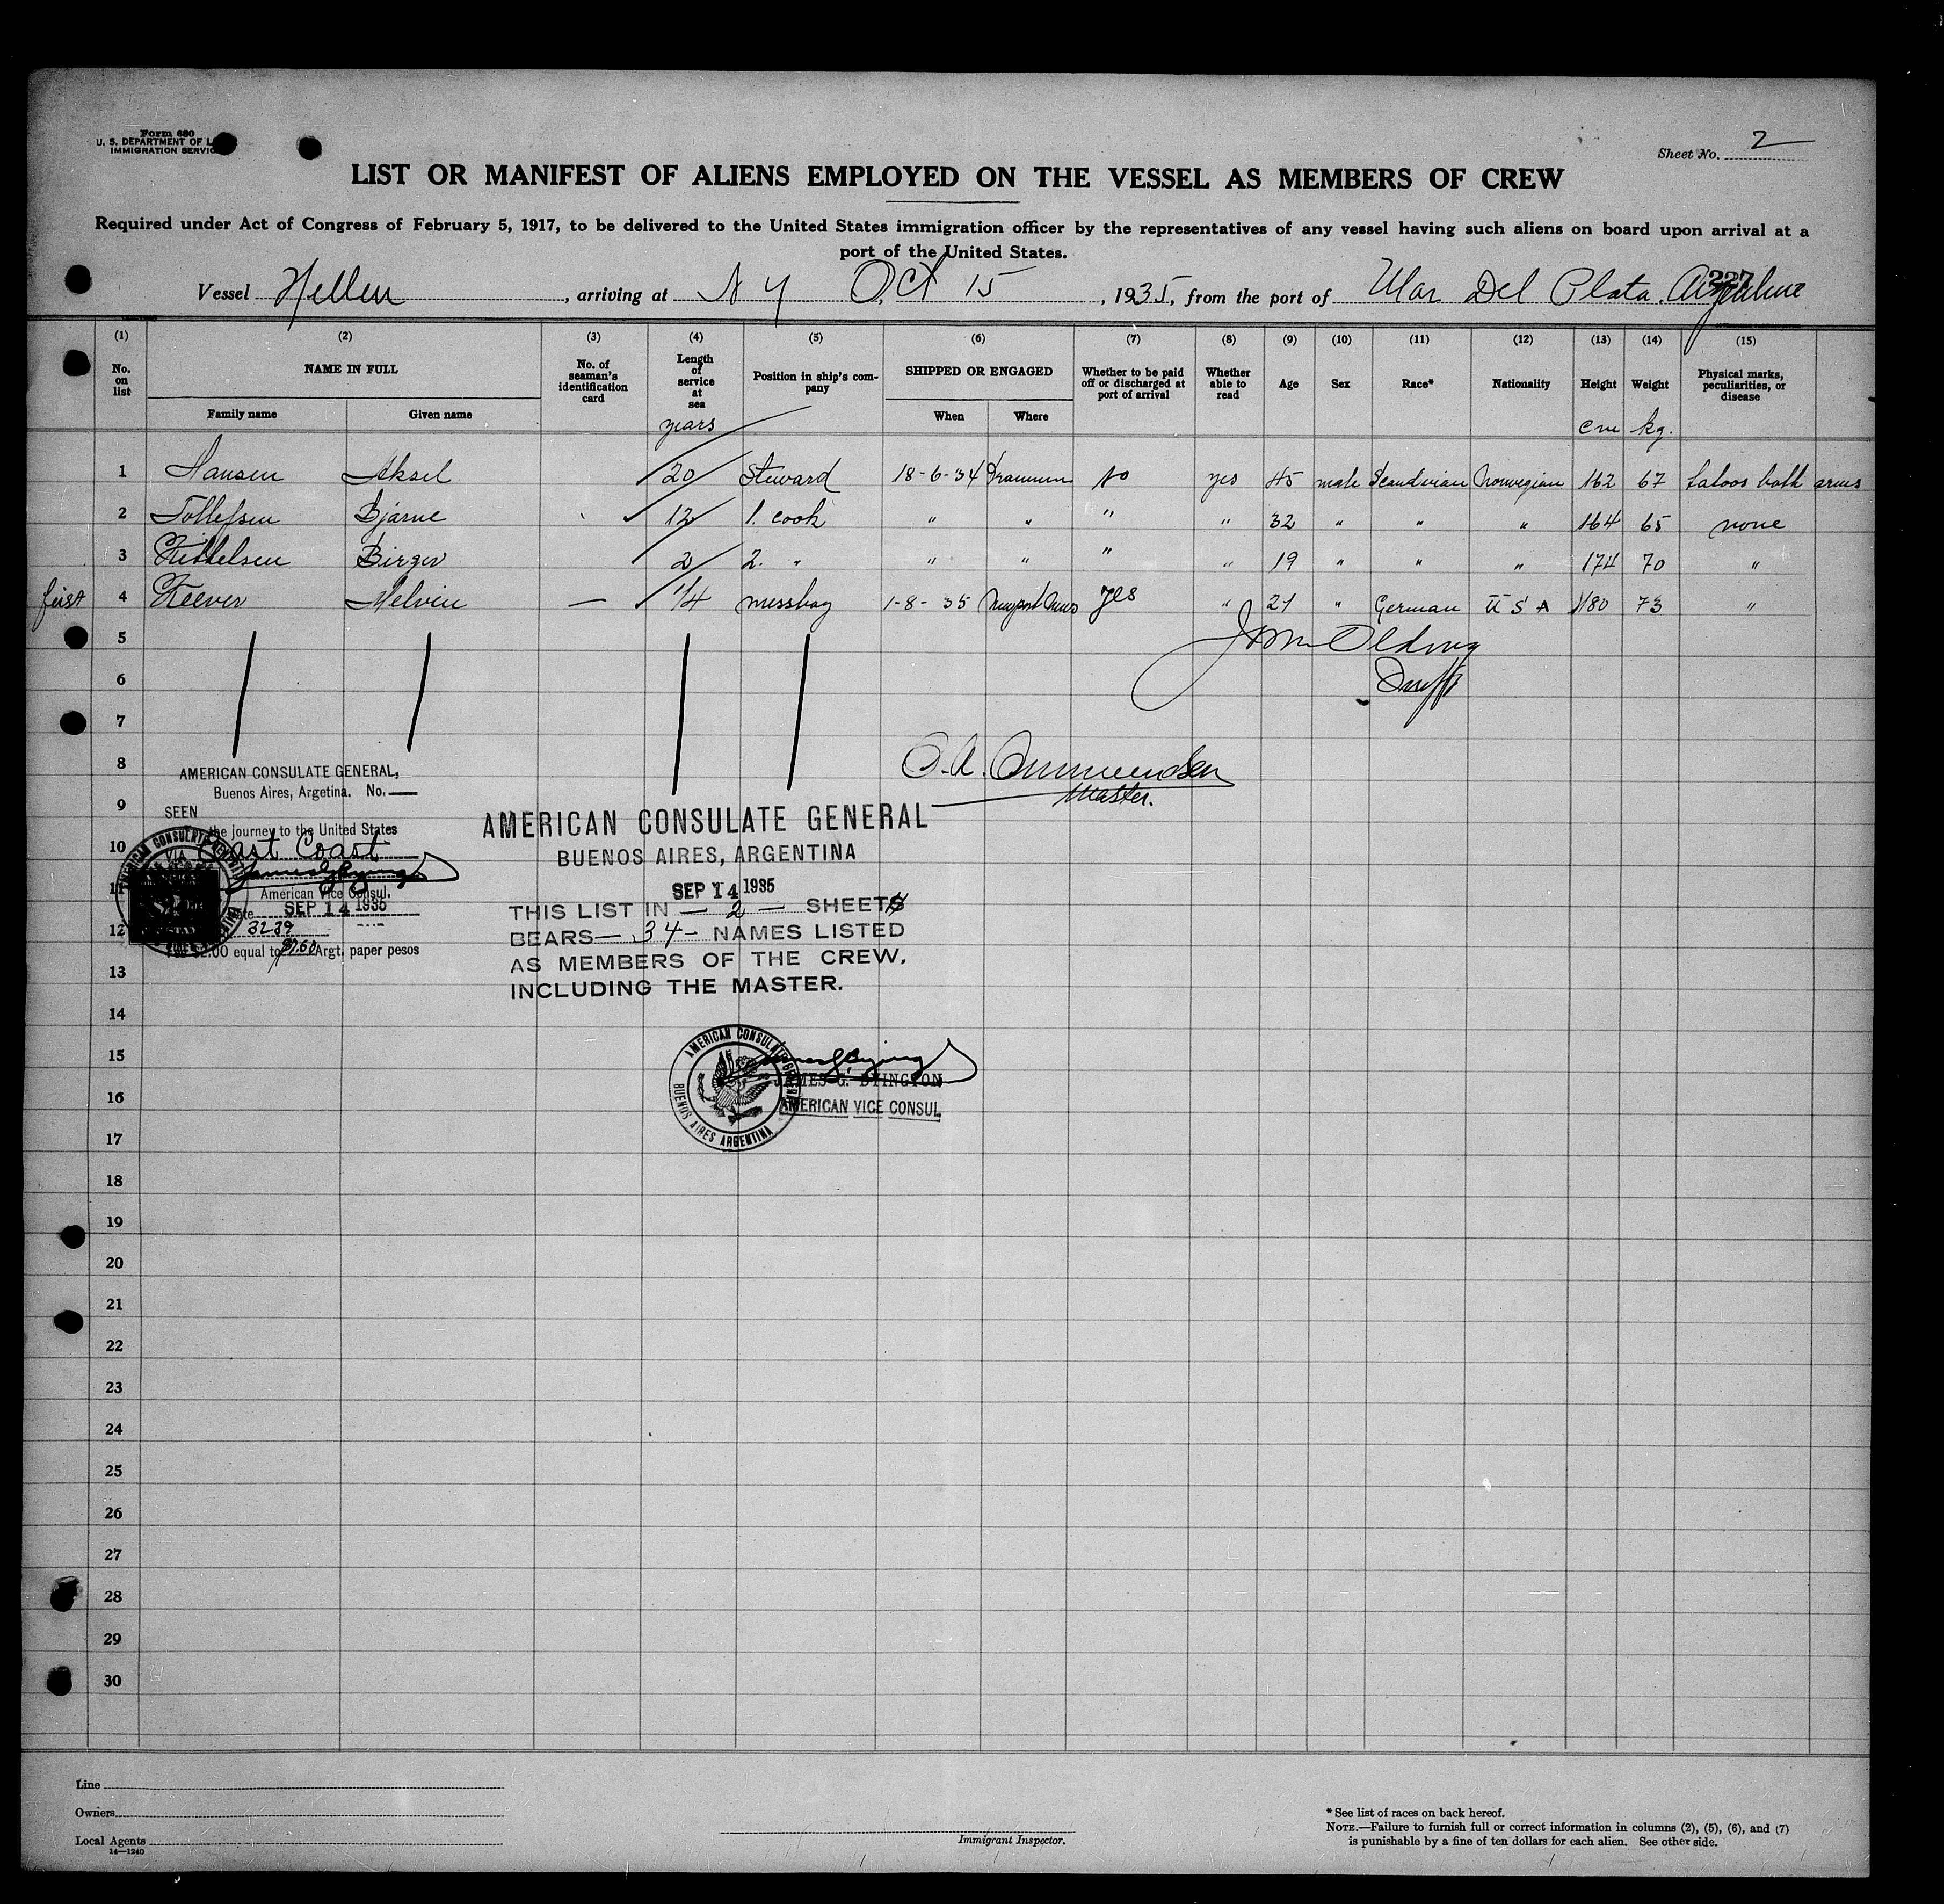 Form 680
U. S. DEPARTMENT OF L
IMMIGRATION SERVIC
Sheet No. 2
LIST OR MANIFEST OF ALIENS EMPLOYED ON THE VESSEL AS MEMBERS OF CREW
Required under Act of Congress of February 5, 1917, to be delivered to the United States immigration officer by the representatives of any vessel having such aliens on board upon arrival at a
port of the United States.
227
Vessel Hellen, arriving at N Y Oct 15, 1935, from the port of Mar Del Plata. Argentine
(1) (2) (3) (4) (5) (6) (7) (8) (9) (10) (11) (12) (13) (14) (15)
No. on list NAME IN FULL No. of seaman's identification card Length of service at sea Position in ship's company SHIPPED OR ENGAGED Whether to be paid off or discharged at port of arrival Whether able to read Age Sex Race* Nationality Height Weight Physical marks, peculiarities, or disease
Family name Given name When Where
years cm kg.
1 Hansen Aksel 20 Steward 18-6-34 Drammen No yes 45 male Scandinian Norwegian 162 67 tatoos both arms
2 Tollefsen Bjarne 12 1. cook " " " " 32 " " " 164 65 none
3 Kittelsen Birger 2 2. " " " " " 19 " " " 174 70 "
first 4 Keever Melvin — 1/4 messboy 1-8-35 Newport News yes " 21 " German U S A 180 73 "
5
6
7
8
9
10
11
12
13
14
15
16
17
18
19
20
21
22
23
24
25
26
27
28
29
30
Master.
AMERICAN CONSULATE GENERAL,
Buenos Aires, Argetina. No. —
SEEN
the journey to the United States
VIA East Coast
American Vice Consul.
Date SEP 14 1935
3239
Fee $2.00 equal to $7.60 Argt. paper pesos
AMERICAN CONSULATE GENERAL
BUENOS AIRES, ARGENTINA
SEP 14 1935
THIS LIST IN — 2 — SHEETS
BEARS — 34 — NAMES LISTED
AS MEMBERS OF THE CREW,
INCLUDING THE MASTER.
AMERICAN CONSULATE GENERAL
BUENOS AIRES ARGENTINA
JAMES G. BYINGTON
AMERICAN VICE CONSUL
Line
Owners
Local Agents
14—1240
Immigrant Inspector.
* See list of races on back hereof.
NOTE.—Failure to furnish full or correct information in columns (2), (5), (6), and (7)
is punishable by a fine of ten dollars for each alien. See other side.